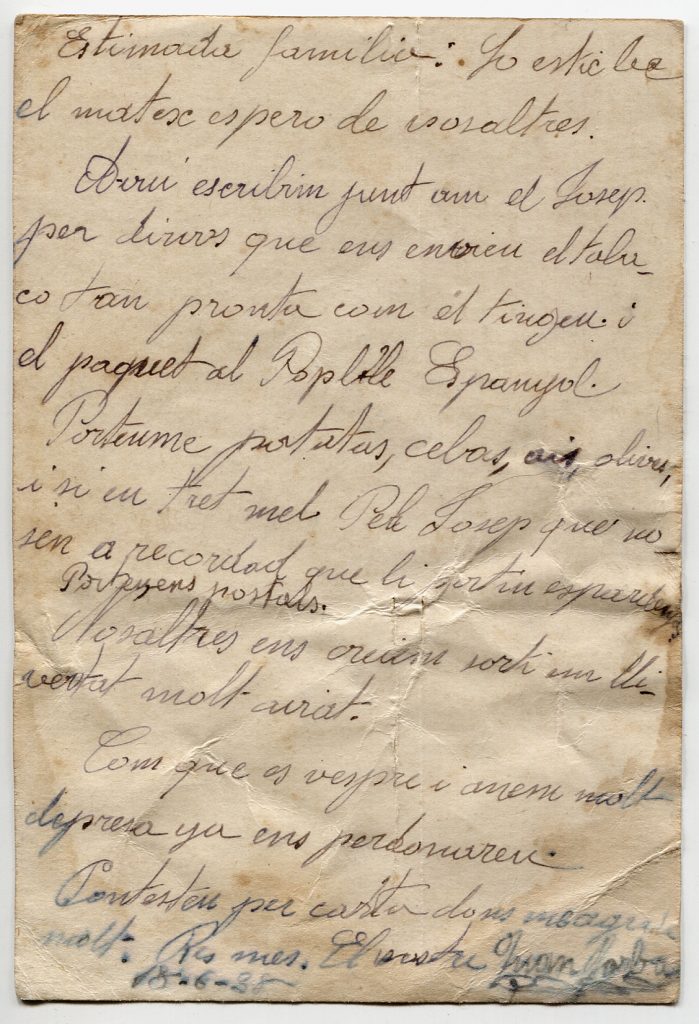 Estimada familia: Jo estic be
el matex espero de vosaltres.
Avui escribim junt am el Josep.
per dirvos que ens envieu el taba-
co tan pronta com el tingeu i
el paquet al Poplle Espanyol.
Porteume patatas, cebas, ais, olives,
i si eu tret mel. Pel Josep que no
sen a recordad que li portin espardenyes
Porteuens postals.
Nosaltres ens creiem sorti en lli-
vertat molt aviat.
Com que es vespre i anem molt
depresa ya ens perdonareu.
Contesteu per carta dons m'sagrada
molt. Res mes. El vostre Juan
18-6-38